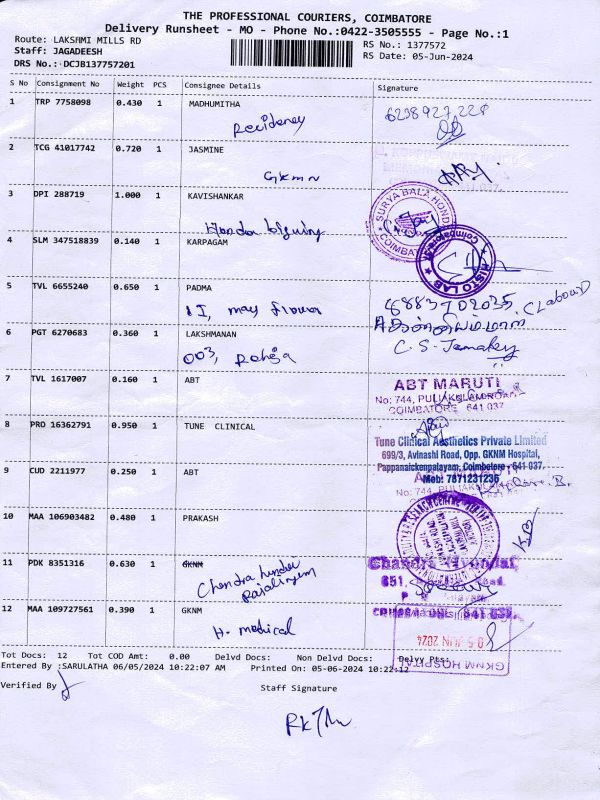 THE PROFESSIONAL COURIERS, COIMBATORE
Delivery Runsheet - MO - Phone No.:0422-3505555 - Page No.:1
Route: LAKSHMI MILLS RD
RS No.: 1377572
Staff: JAGADEESH
RS Date: 05-Jun-2024
DRS No.: DCJB137757201
S No Consignment No Weight PCS Consignee Details Signature
1 TRP 7758098 0.430 1 MADHUMITHA
Residency
2 TCG 41017742 0.720 1 JASMINE
GKMN
3 DPI 288719 1.000 1 KAVISHANKAR
SURYA BALA HONDA
COIMBATORE
Honda
4 SLM 347518839 0.140 1 KARPAGAM
HISTO LAB
Coimbatore
5 TVL 6655240 0.650 1 PADMA
1I, may flower
8883702035
6 PGT 6270683 0.360 1 LAKSHMANAN
003,
C.S.
7 TVL 1617007 0.160 1 ABT
ABT MARUTI
No: 744, PULIAKULAM ROAD
COIMBATORE 641 037
8 PRO 16362791 0.950 1 TUNE CLINICAL
Tune Clinical Aesthetics Private Limited
699/3, Avinashi Road, Opp. GKNM Hospital,
Pappanaickenpalayam, Coimbatore - 641 037.
Mob: 7871231236
9 CUD 2211977 0.250 1 ABT
No: 744,
10 MAA 106903482 0.480 1 PRAKASH
11 PDK 8351316 0.630 1 GKNM
Chandra hundai
Chandra Hyundai
851,
641 037
12 MAA 109727561 0.390 1 GKNM
H. medical
05 JUN 2024
GKNM HOSPITAL
Tot Docs: 12 Tot COD Amt: 0.00 Delvd Docs: Non Delvd Docs: Delvy Pts:
Entered By :SARULATHA 06/05/2024 10:22:07 AM Printed On: 05-06-2024 10:22:12
Verified By
Staff Signature